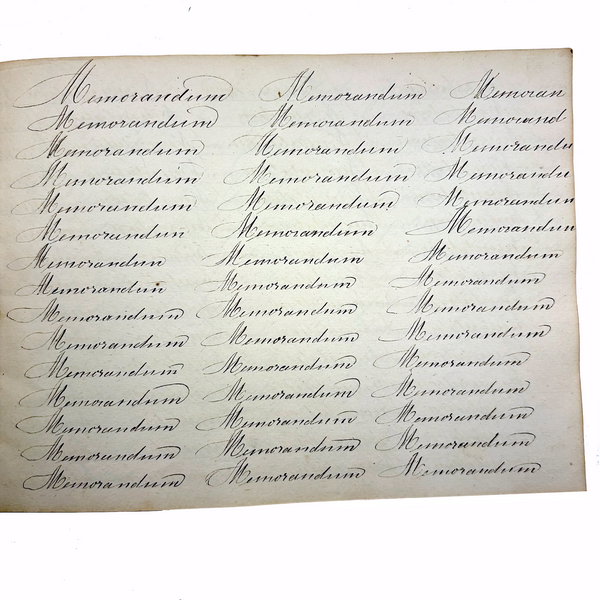 Memorandum Memorandum Memoran
Memorandum Memorandum Memorand
Memorandum Memorandum Memorandu
Memorandum Memorandum Memorandu
Memorandum Memorandum Memorandum
Memorandun Memorandum Memorandum
Memorandun Memorandum Memorandum
Memorandun Memorandum Memorandum
Memorandum Memorandum Memorandum
Memorandum Memorandum Memorandum
Memorandum Memorandum Memorandum
Memorandum Memorandum Memorandum
Memorandum Memorandum Memorandum
Memorandum Memorandum Memorandum
Memorandum Memorandum Memorandum